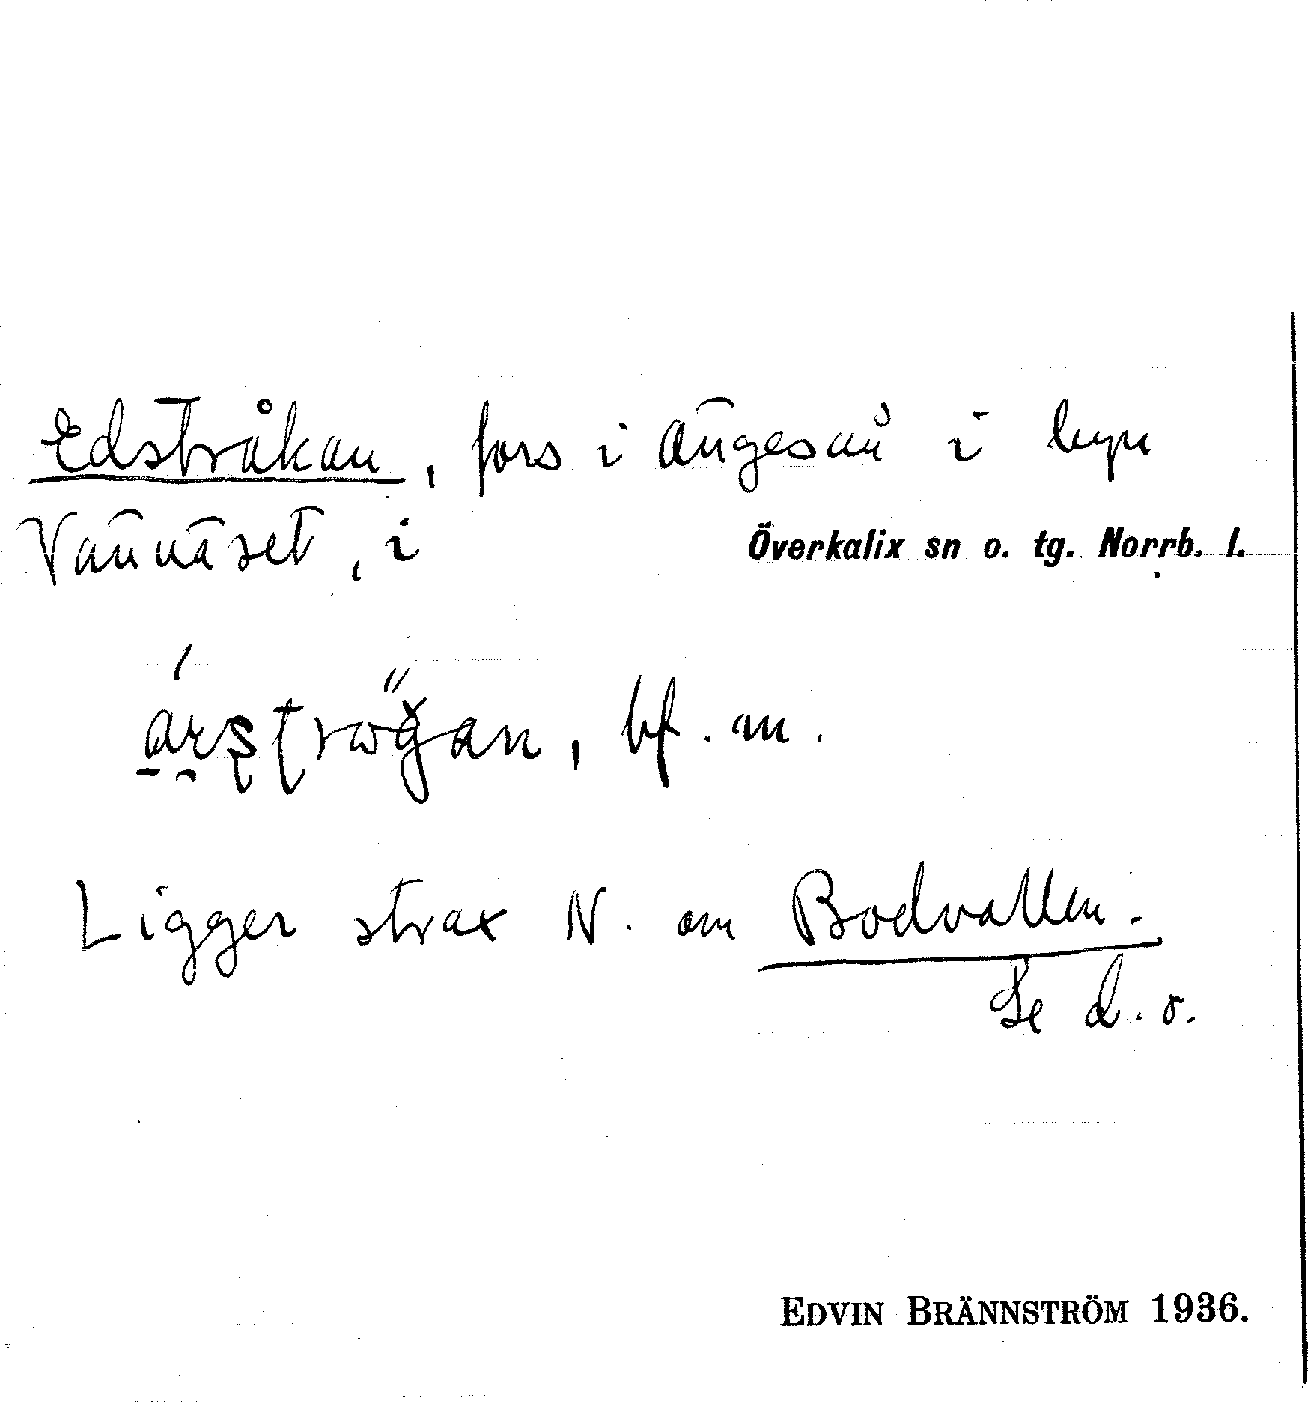 Edstråkan, fors i Ängesån i byn
Vännäset, i Överkalix sn o. tg. Norrb. l.
bf. m.
Ligger strax N. om Bodvallen.
Se d. o.
EDVIN BRÄNNSTRÖM 1936.